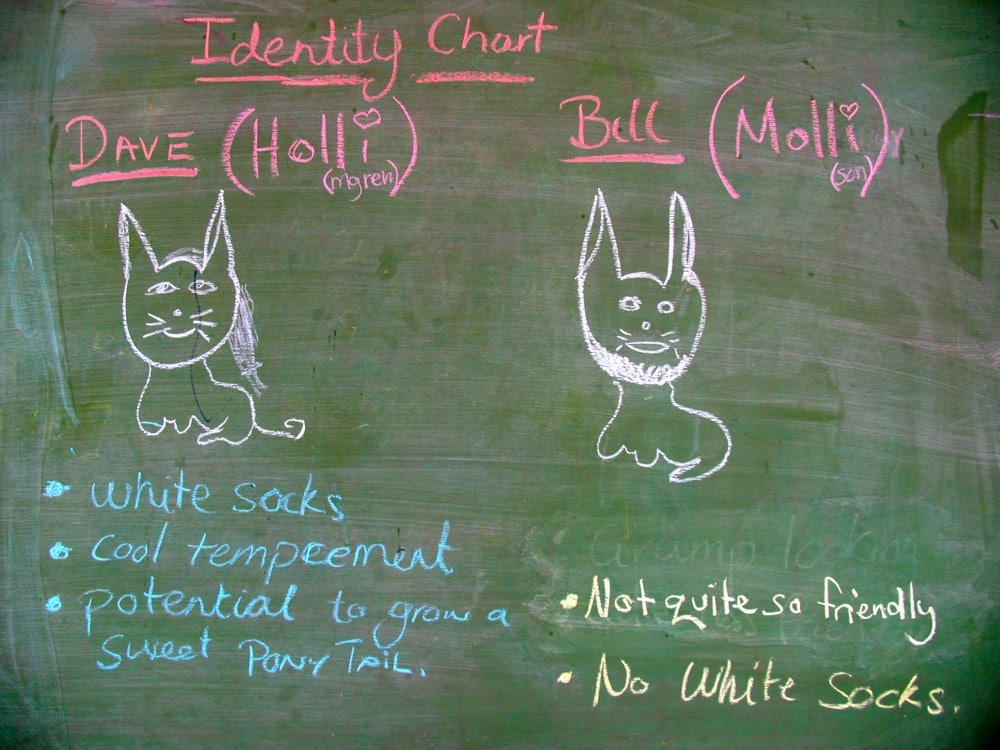 Identity Chart
DAVE (Holli)
(mgren)
Bill (Molli)
(son)
• white socks
• cool tempreement
• potential to grow a
sweet PONY TAIL.
Grump looking
• Not quite so friendly
• No White Socks.